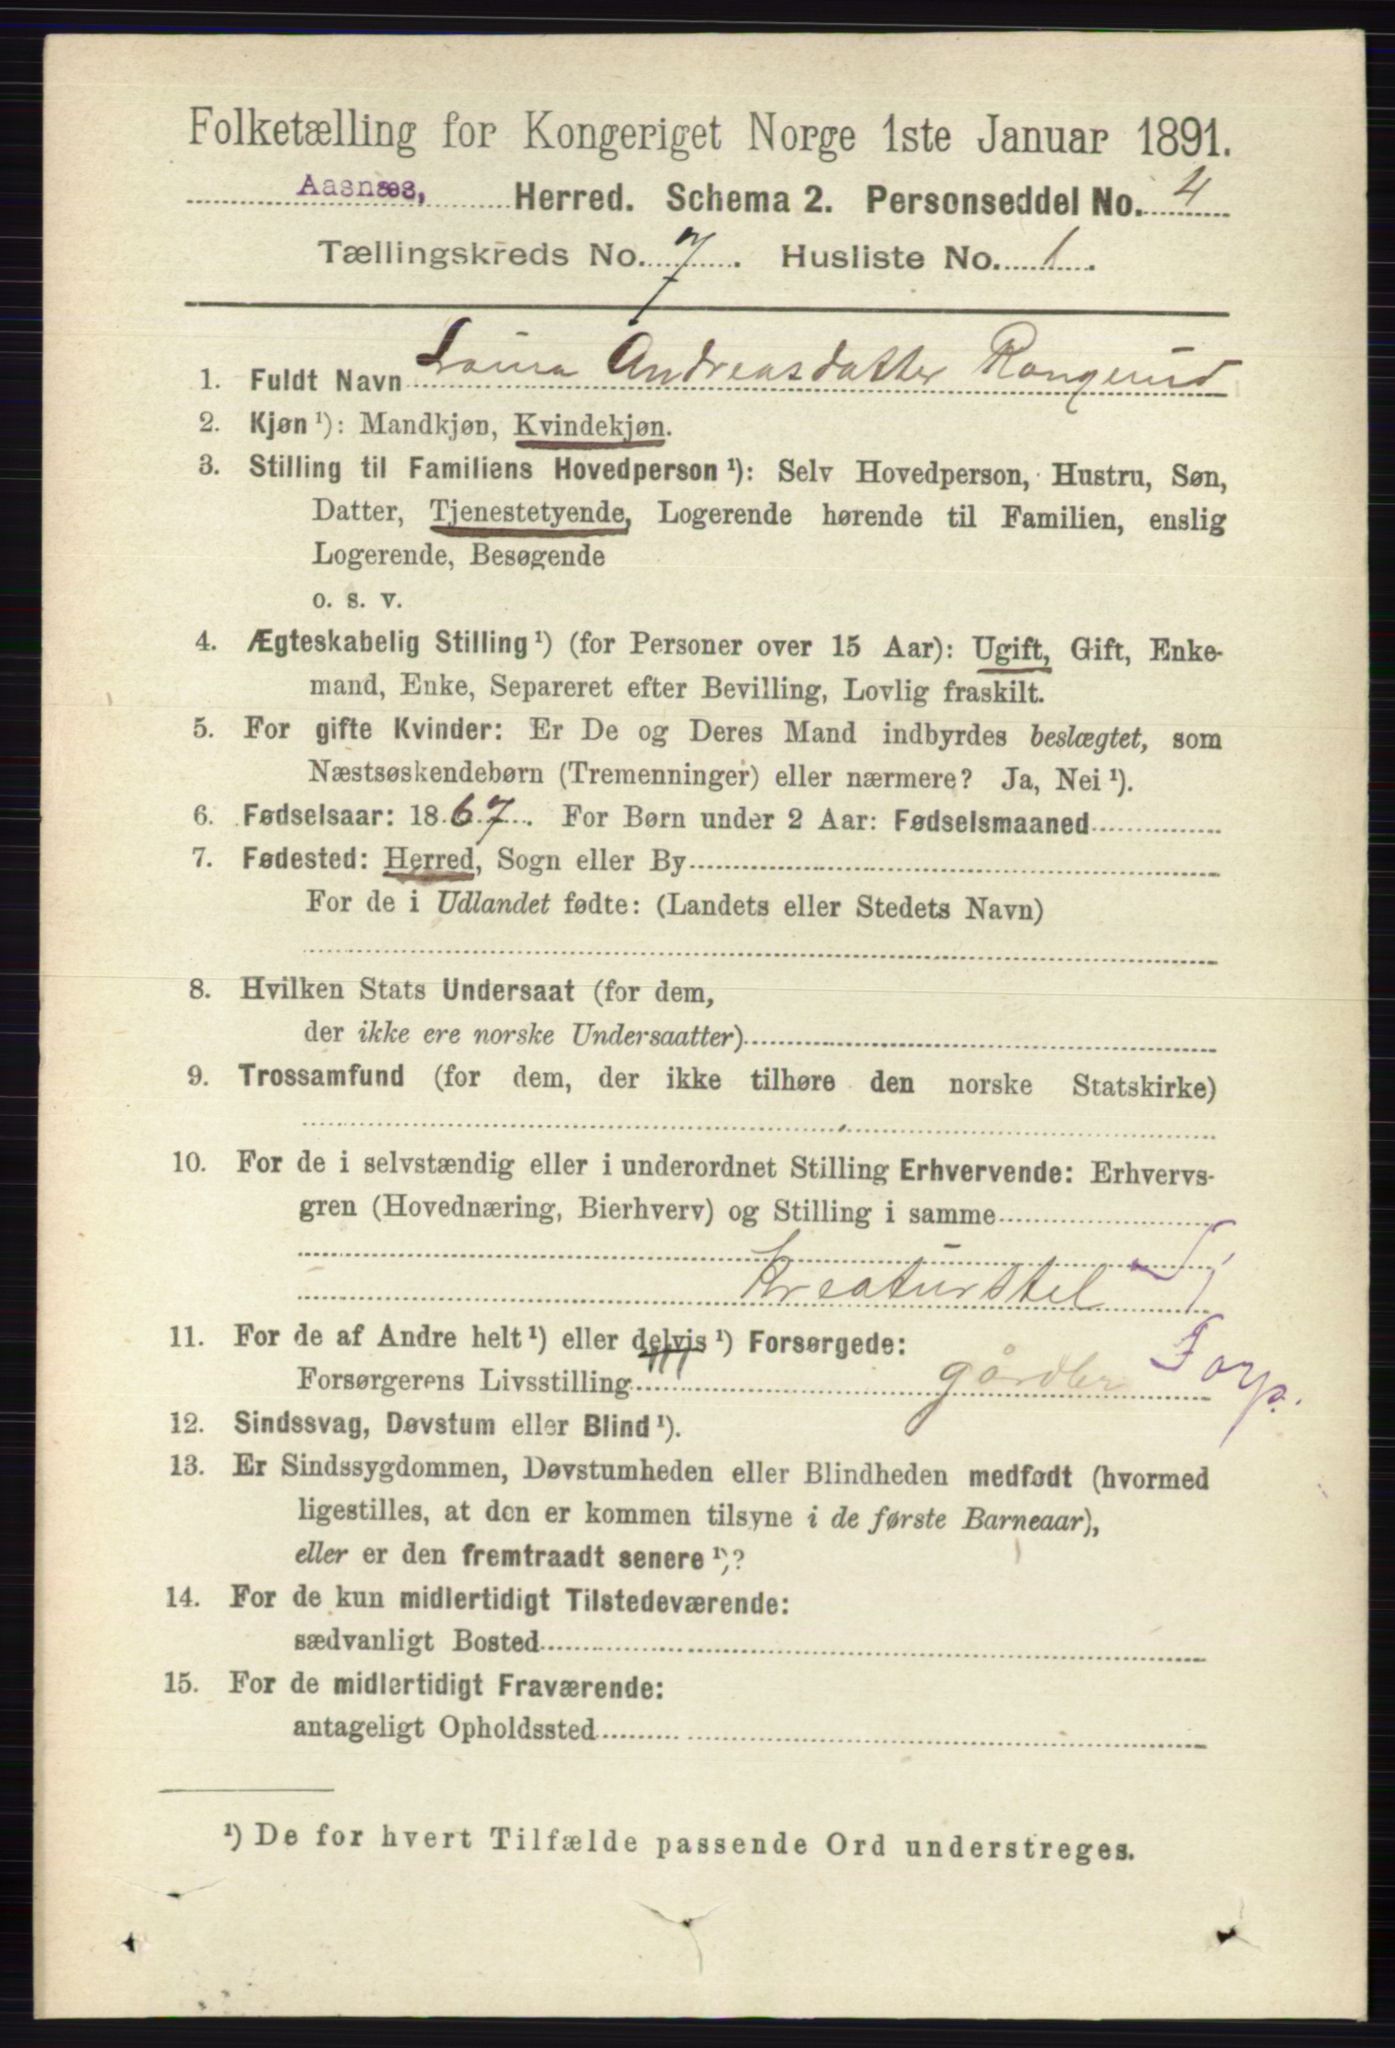 Folketælling for Kongeriget Norge 1ste Januar 1891.
Aasnæs, Herred. Schema 2. Personseddel No. 4
Tællingskreds No. 7. Husliste No. 1.
1. Fuldt Navn Andreasdatter
2. Kjøn ¹): Mandkjøn, Kvindekjøn.
3. Stilling til Familiens Hovedperson ¹): Selv Hovedperson, Hustru, Søn,
Datter, Tjenestetyende, Logerende hørende til Familien, enslig
Logerende, Besøgende
o. s. v.
4. Ægteskabelig Stilling ¹) (for Personer over 15 Aar): Ugift, Gift, Enke-
mand, Enke, Separeret efter Bevilling, Lovlig fraskilt.
5. For gifte Kvinder: Er De og Deres Mand indbyrdes beslægtet, som
Næstsøskendebørn (Tremenninger) eller nærmere? Ja, Nei ¹).
6. Fødselsaar: 1867. For Børn under 2 Aar: Fødselsmaaned
7. Fødested: Herred, Sogn eller By
For de i Udlandet fødte: (Landets eller Stedets Navn)
8. Hvilken Stats Undersaat (for dem,
der ikke ere norske Undersaatter)
9. Trossamfund (for dem, der ikke tilhøre den norske Statskirke)
10. For de i selvstændig eller i underordnet Stilling Erhvervende: Erhvervs-
gren (Hovednæring, Bierhverv) og Stilling i samme
Kreaturstel Tj
11. For de af Andre helt ¹) eller delvis ¹) Forsørgede:
Forsørgerens Livsstilling gårdbr
12. Sindssvag, Døvstum eller Blind ¹).
13. Er Sindssygdommen, Døvstumheden eller Blindheden medfødt (hvormed
ligestilles, at den er kommen tilsyne i de første Barneaar),
eller er den fremtraadt senere ¹)?
14. For de kun midlertidigt Tilstedeværende:
sædvanligt Bosted
15. For de midlertidigt Fraværende:
antageligt Opholdssted
¹) De for hvert Tilfælde passende Ord understreges.